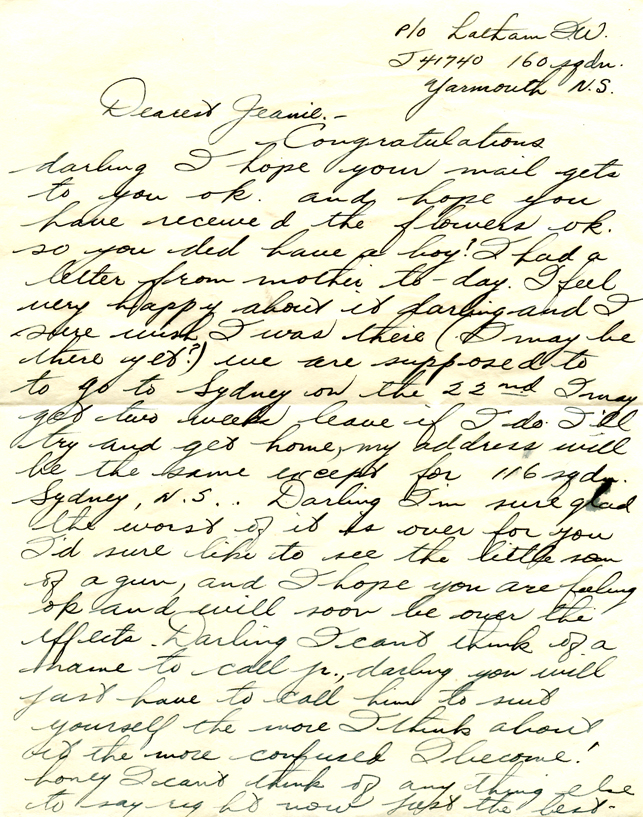 P/O Latham I.W.
J41740 160 sqdn.
Yarmouth N.S.
Dearest Jeanie.-
Congratulations
darling I hope your mail gets
to you ok. and hope you
have received the flowers ok.
so you did have a boy! I had a
letter from mother to-day. I feel
very happy about it darling and I
sure wish I was there (I may be
there yet?) we are supposed to
to go to Sydney on the 22nd I may
get two weeks leave if I do I'll
try and get home, my address will
be the same except for 116 sqdn.
Sydney, N.S... Darling I'm sure glad
the worst of it is over for you
I'd sure like to see the little son
of a gun, and I hope you are feeling
ok and will soon be over the
effects. Darling I can't think of a
name to call jr., darling you will
just have to call him to suit
yourself the more I think about
it the more confused I become!
honey I can't think of any thing else
to say right now just the best-